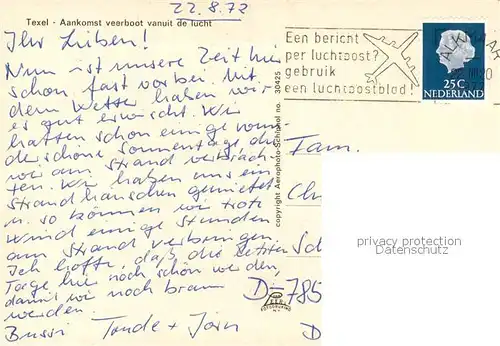 22.8.72
Texel - Aankomst veerboot vanuit de lucht
Ihr Lieben!
Nun ist unsere Zeit hier
schon fast vorbei. Mit
dem Wetter haben wir
es gut erwischt. Wir
hatten schon einige
schöne Sonnentage, die
wir am Strand verbrach-
ten. Wir haben uns ein
Strandhäuschen gemietet
u. so können wir trotz
Wind einige Stunden
am Strand verbringen
Ich hoffe, daß die letzten
Tage hier noch schön werden,
damit wir noch braun
werden.
Bussi Tande + Jörn
copyright Aerophoto-Schiphol no. 30425
Een bericht
per luchtpost?
gebruik
een luchtpostblad!
ALKMAAR
25C
NEDERLAND
Fam.
Ch
Sch
D-785
D
privacy protection
Datenschutz